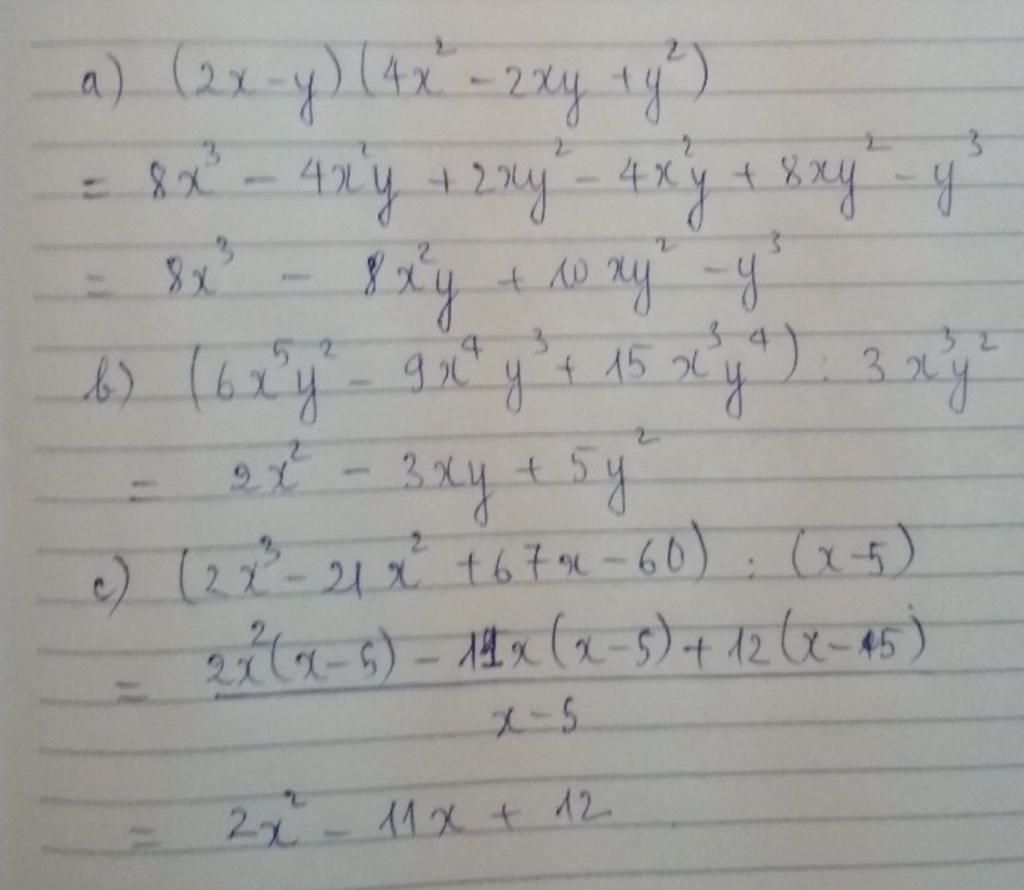 a) (2x - y)(4x² - 2xy + y²)
= 8x³ - 4x²y + 2xy² - 4x²y + 8xy² - y³
= 8x³ - 8x²y + 10xy² - y³
b) (6x⁵y² - 9x⁴y³ + 15x³y⁴) : 3x³y²
= 2x² - 3xy + 5y²
c) (2x³ - 21x² + 67x - 60) : (x - 5)
= 2x²(x - 5) - 11x(x - 5) + 12(x - 5)
x - 5
= 2x² - 11x + 12